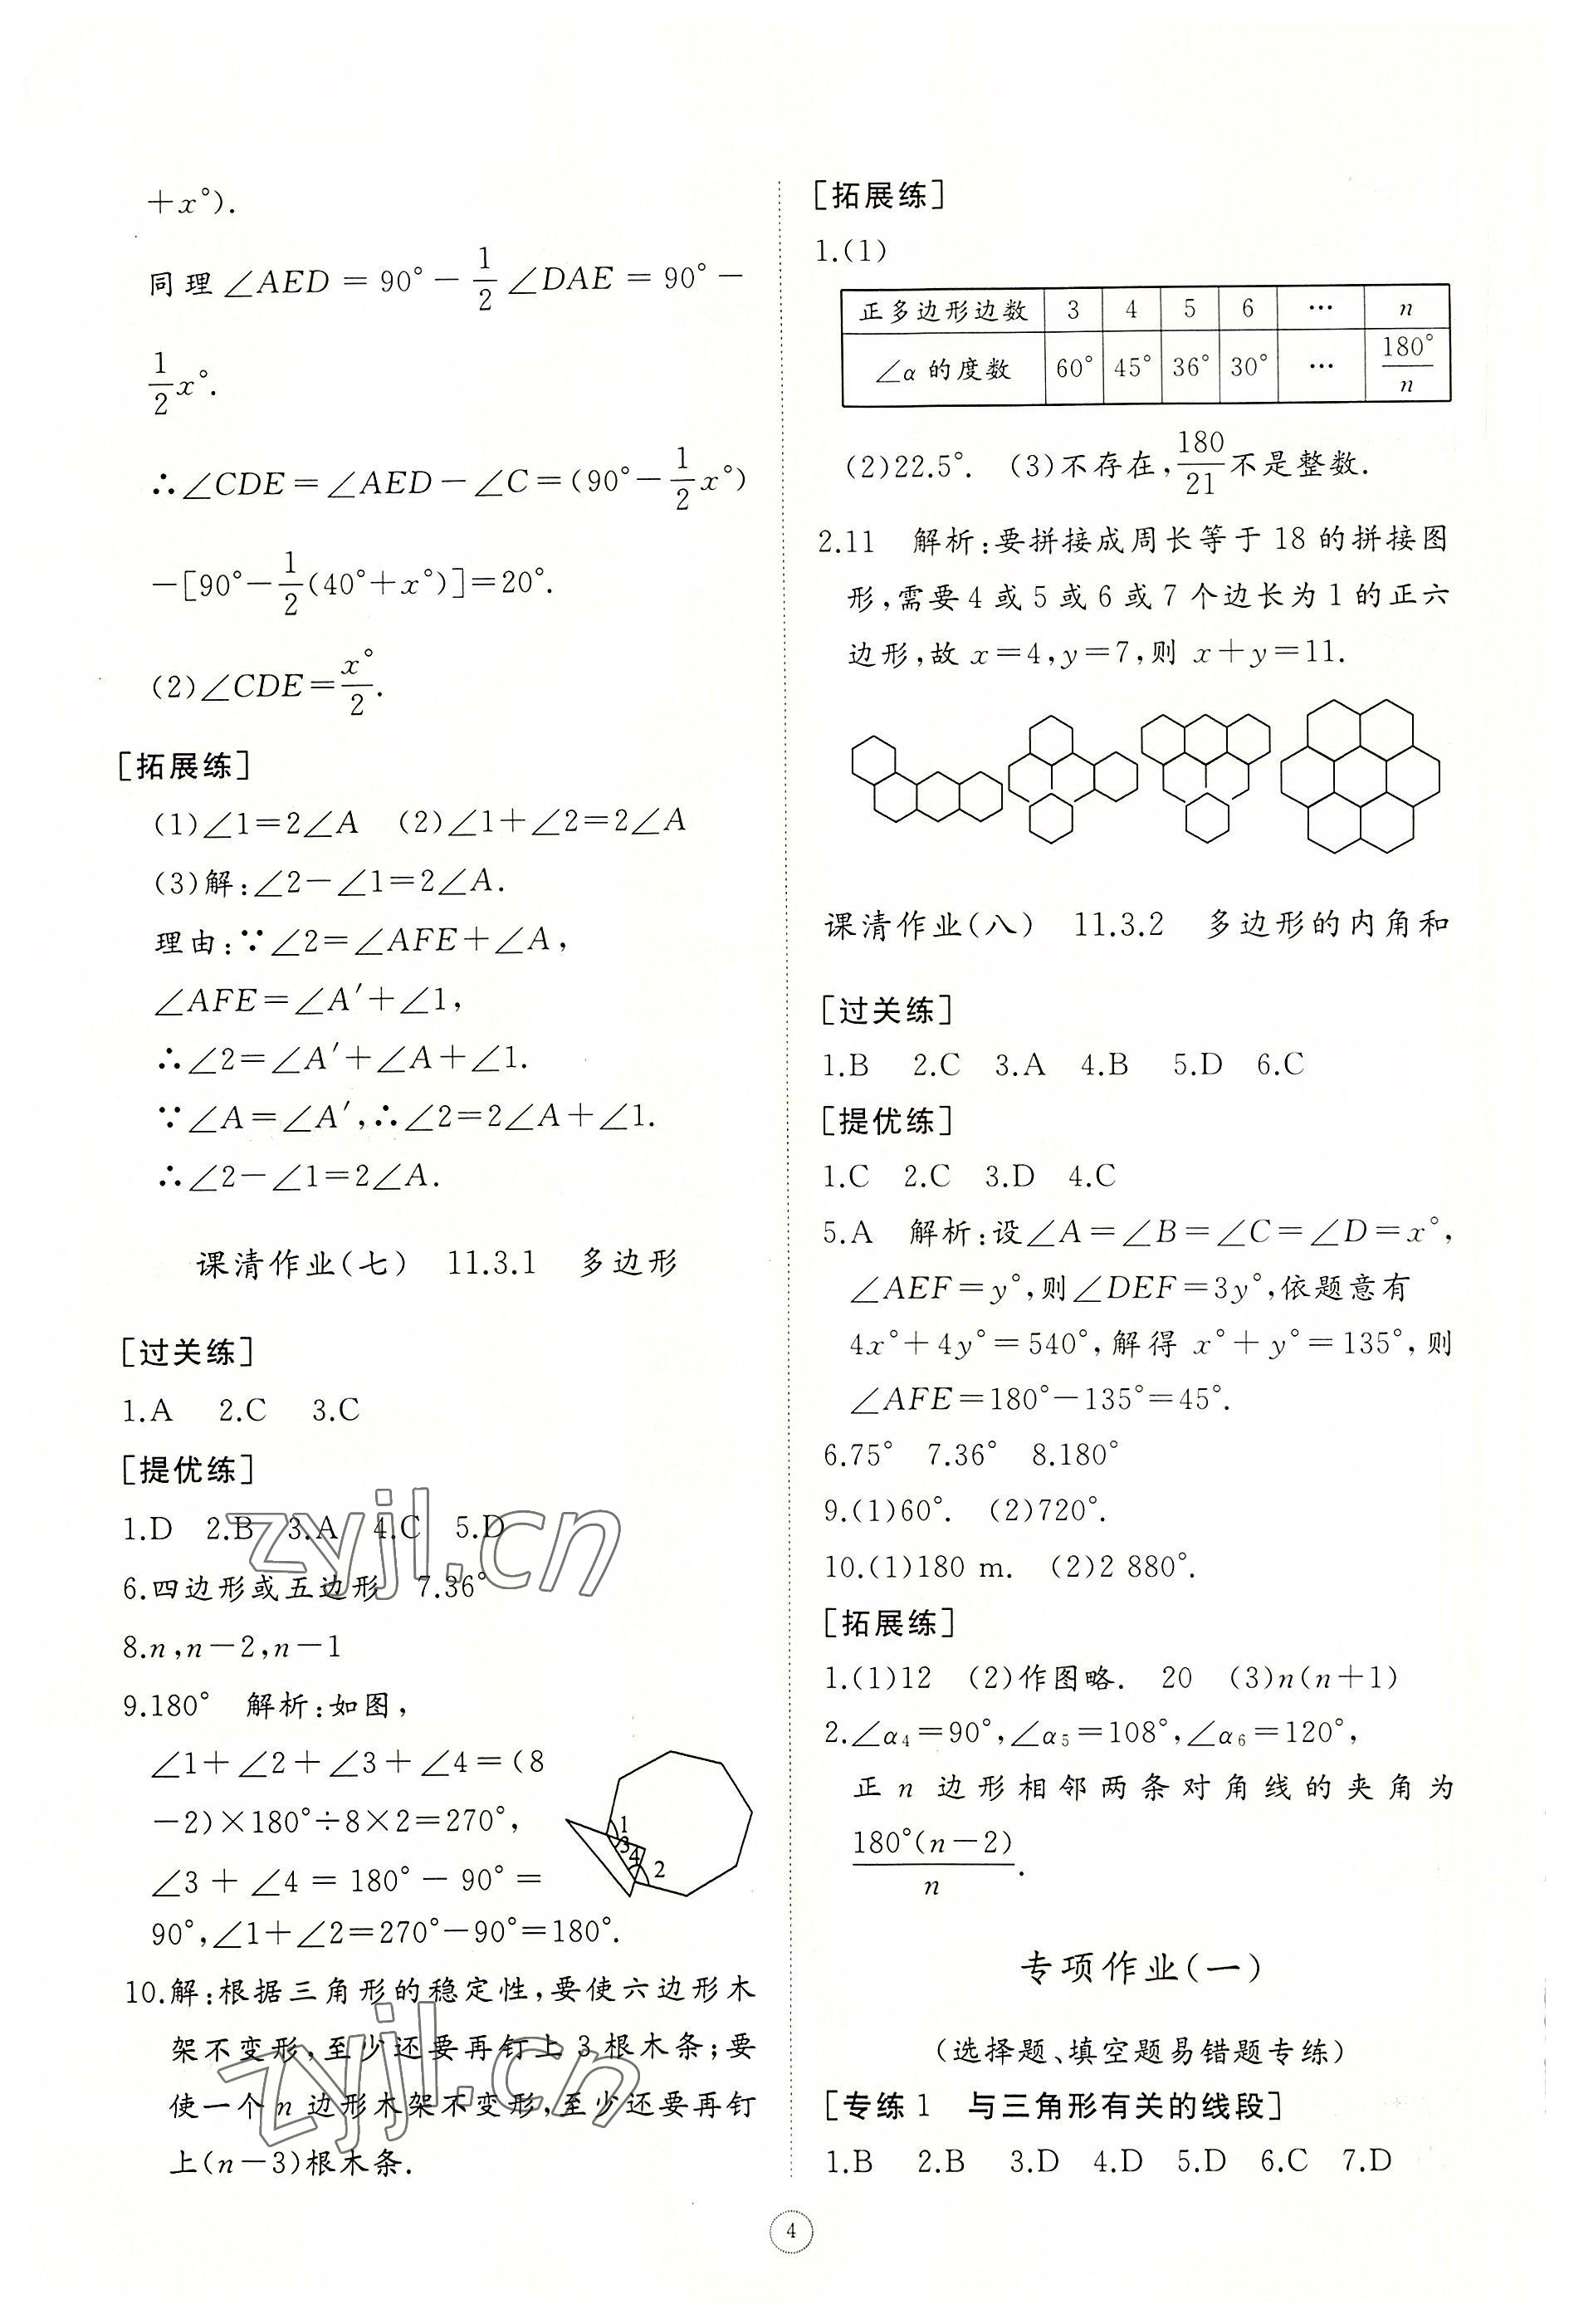 +x°).
同理∠AED=90°-1/2∠DAE=90°-
1/2x°.
∴∠CDE=∠AED-∠C=(90°-1/2x°)
-[90°-1/2(40°+x°)]=20°.
(2)∠CDE=x°/2.
[拓展练]
(1)∠1=2∠A (2)∠1+∠2=2∠A
(3)解:∠2-∠1=2∠A.
理由:∵∠2=∠AFE+∠A,
∠AFE=∠A′+∠1,
∴∠2=∠A′+∠A+∠1.
∵∠A=∠A′,∴∠2=2∠A+∠1.
∴∠2-∠1=2∠A.
课清作业(七) 11.3.1 多边形
[过关练]
1.A 2.C 3.C
[提优练]
1.D 2.B 3.A 4.C 5.D
6.四边形或五边形 7.36°
8.n,n-2,n-1
9.180° 解析:如图,
∠1+∠2+∠3+∠4=(8
-2)×180°÷8×2=270°,
∠3+∠4=180°-90°=
90°,∠1+∠2=270°-90°=180°.
1
3
4
2
10.解:根据三角形的稳定性,要使六边形木
架不变形,至少还要再钉上3根木条;要
使一个n边形木架不变形,至少还要再钉
上(n-3)根木条.
zyjl.cn
zyjl.cn
[拓展练]
1.(1)
正多边形边数 3 4 5 6 … n
∠α的度数 60° 45° 36° 30° … 180°/n
(2)22.5°. (3)不存在,180/21不是整数.
2.11 解析:要拼接成周长等于18的拼接图
形,需要4或5或6或7个边长为1的正六
边形,故x=4,y=7,则x+y=11.
课清作业(八) 11.3.2 多边形的内角和
[过关练]
1.B 2.C 3.A 4.B 5.D 6.C
[提优练]
1.C 2.C 3.D 4.C
5.A 解析:设∠A=∠B=∠C=∠D=x°,
∠AEF=y°,则∠DEF=3y°,依题意有
4x°+4y°=540°,解得x°+y°=135°,则
∠AFE=180°-135°=45°.
6.75° 7.36° 8.180°
9.(1)60°. (2)720°.
10.(1)180 m. (2)2 880°.
[拓展练]
1.(1)12 (2)作图略. 20 (3)n(n+1)
2.∠α₄=90°,∠α₅=108°,∠α₆=120°,
正n边形相邻两条对角线的夹角为
180°(n-2)/n.
专项作业(一)
(选择题、填空题易错题专练)
[专练1 与三角形有关的线段]
1.B 2.B 3.D 4.D 5.D 6.C 7.D
4